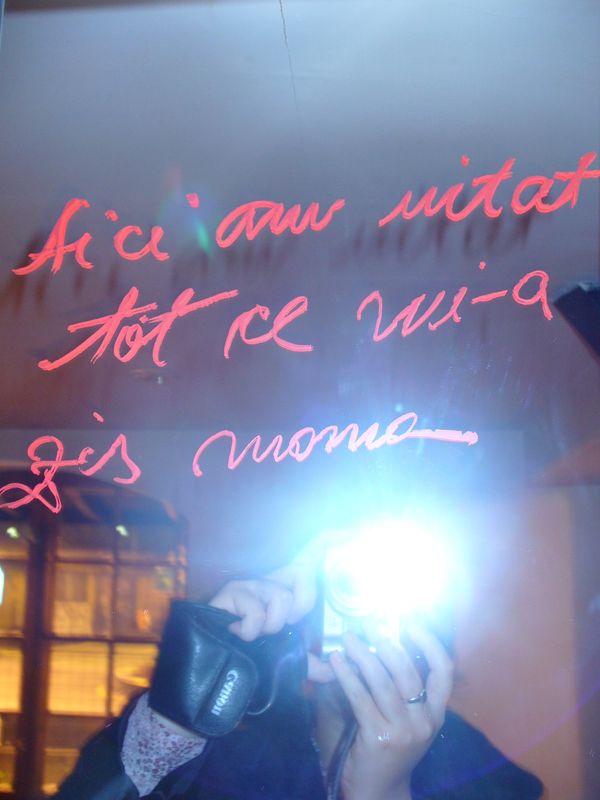 Aici am uitat
tot ce mi-a
zis mama
Canon